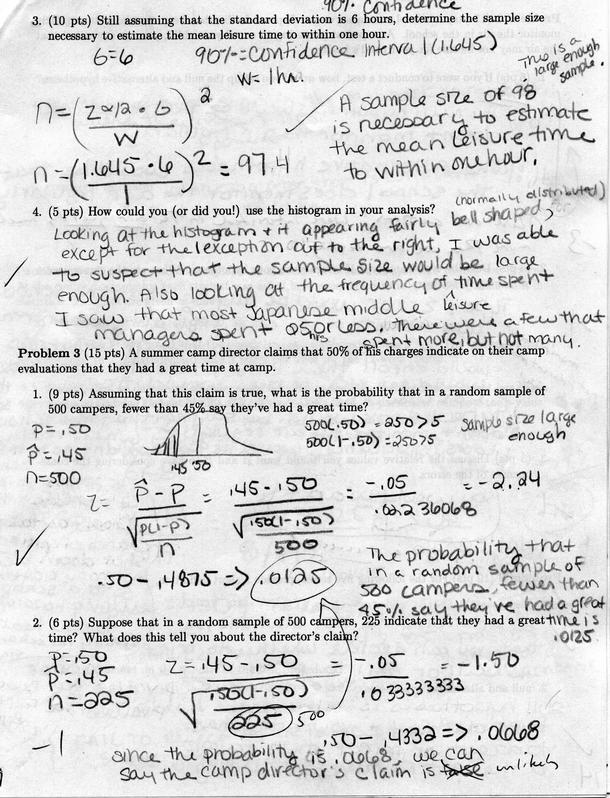 90% Confidence
3. (10 pts) Still assuming that the standard deviation is 6 hours, determine the sample size
necessary to estimate the mean leisure time to within one hour.
б=6 90% = Confidence Interval (1.645)
W = 1 hr.
This is a
large enough
sample.
n = (Zα/2 · б / W)²
n = (1.645 · 6 / 1)² = 97.4
A sample size of 98
is necessary to estimate
the mean leisure time
to within one hour.
4. (5 pts) How could you (or did you!) use the histogram in your analysis?
(normally distributed)
Looking at the histogram + it appearing fairly bell shaped,
except for the exception out to the right, I was able
to suspect that the sample size would be large
enough. Also looking at the frequency of time spent
leisure
I saw that most Japanese middle
managers spent 050 or less. There were a few that
hrs
spent more, but not many.
Problem 3 (15 pts) A summer camp director claims that 50% of his charges indicate on their camp
evaluations that they had a great time at camp.
1. (9 pts) Assuming that this claim is true, what is the probability that in a random sample of
500 campers, fewer than 45% say they've had a great time?
p = .50
p̂ = .45
n = 500
.45 .50
500(.50) = 250 > 5
500(1-.50) = 250 > 5
sample size large
enough
Z = p̂ - p / √(p(1-p) / n) = .45 - .50 / √(.50(1-.50) / 500) = -.05 / .02236068 = -2.24
.50 - .4875 => .0125
The probability that
in a random sample of
500 campers, fewer than
45% say they've had a great
time is
.0125.
2. (6 pts) Suppose that in a random sample of 500 campers, 225 indicate that they had a great
time? What does this tell you about the director's claim?
p = .50
p̂ = .45
n = 225
Z = .45 - .50 / √(.50(1-.50) / 225) = -.05 / .033333333 = -1.50
500
.50 - .4332 => .0668
-1
since the probability is .0668, we can
say the camp director's claim is false unlikely